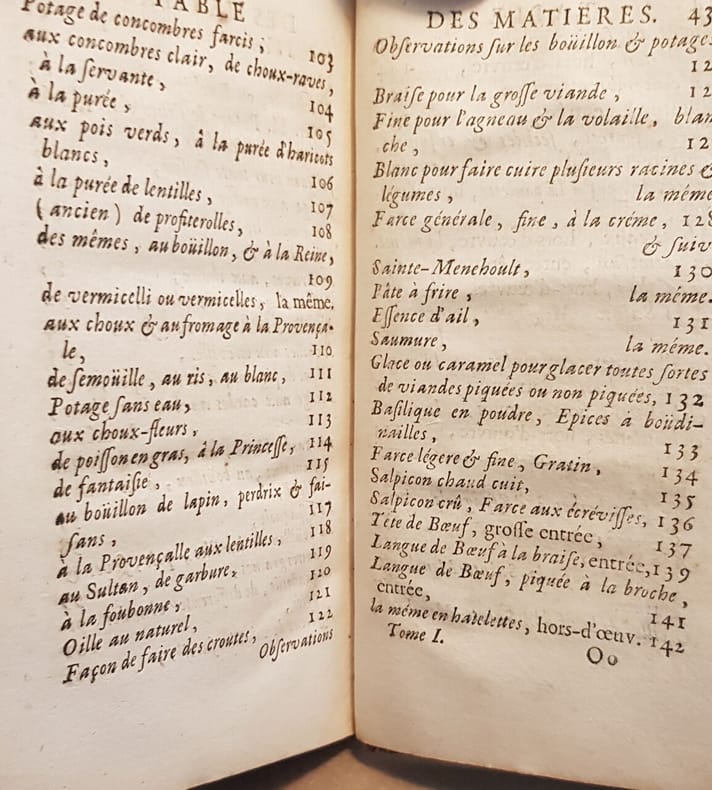 TABLE
Potage de concombres farcis, 103
aux concombres clair, de choux-raves,
à la servante, 104
à la purée, 105
aux pois verds, à la purée d'haricots
blancs, 106
à la purée de lentilles, 107
(ancien) de profiterolles, 108
des mêmes, au boüillon, & à la Reine,
109
de vermicelli ou vermicelles, la même.
aux choux & au fromage à la Provença-
le, 110
de semoüille, au ris, au blanc, 111
Potage sans eau, 112
aux choux-fleurs, 113
de poisson en gras, à la Princesse, 114
de fantaisie, 115
au boüillon de lapin, perdrix & fai-
sans, 117
à la Provençalle aux lentilles, 118
au Sultan, de garbure, 119
à la foubonne, 120
Oille au naturel, 121
Façon de faire des croutes, 122
Observations
DES MATIERES. 43
Observations sur les boüillon & potage
12
Braise pour la grosse viande, 12
Fine pour l'agneau & la volaille, blan
che, 12
Blanc pour faire cuire plusieurs racines &
légumes, la même
Farce générale, fine, à la créme, 128
& suiv
Sainte-Menehoult, 130
Pâte à frire, la même.
Essence d'ail, 131
Saumure, la méme.
Glace ou caramel pour glacer toutes sortes
de viandes piquées ou non piquées, 132
Basilique en poudre, Epices à boüdi-
nailles, 133
Farce légere & fine, Gratin, 134
Salpicon chaud cuit, 135
Salpicon crû, Farce aux écrévisses, 136
Tête de Bœuf, grosse entrée, 137
Langue de Bœuf à la braise, entrée, 139
Langue de Bœuf, piquée à la broche,
entrée, 141
la même en hatelettes, hors-d'œuv. 142
Tome I. Oo